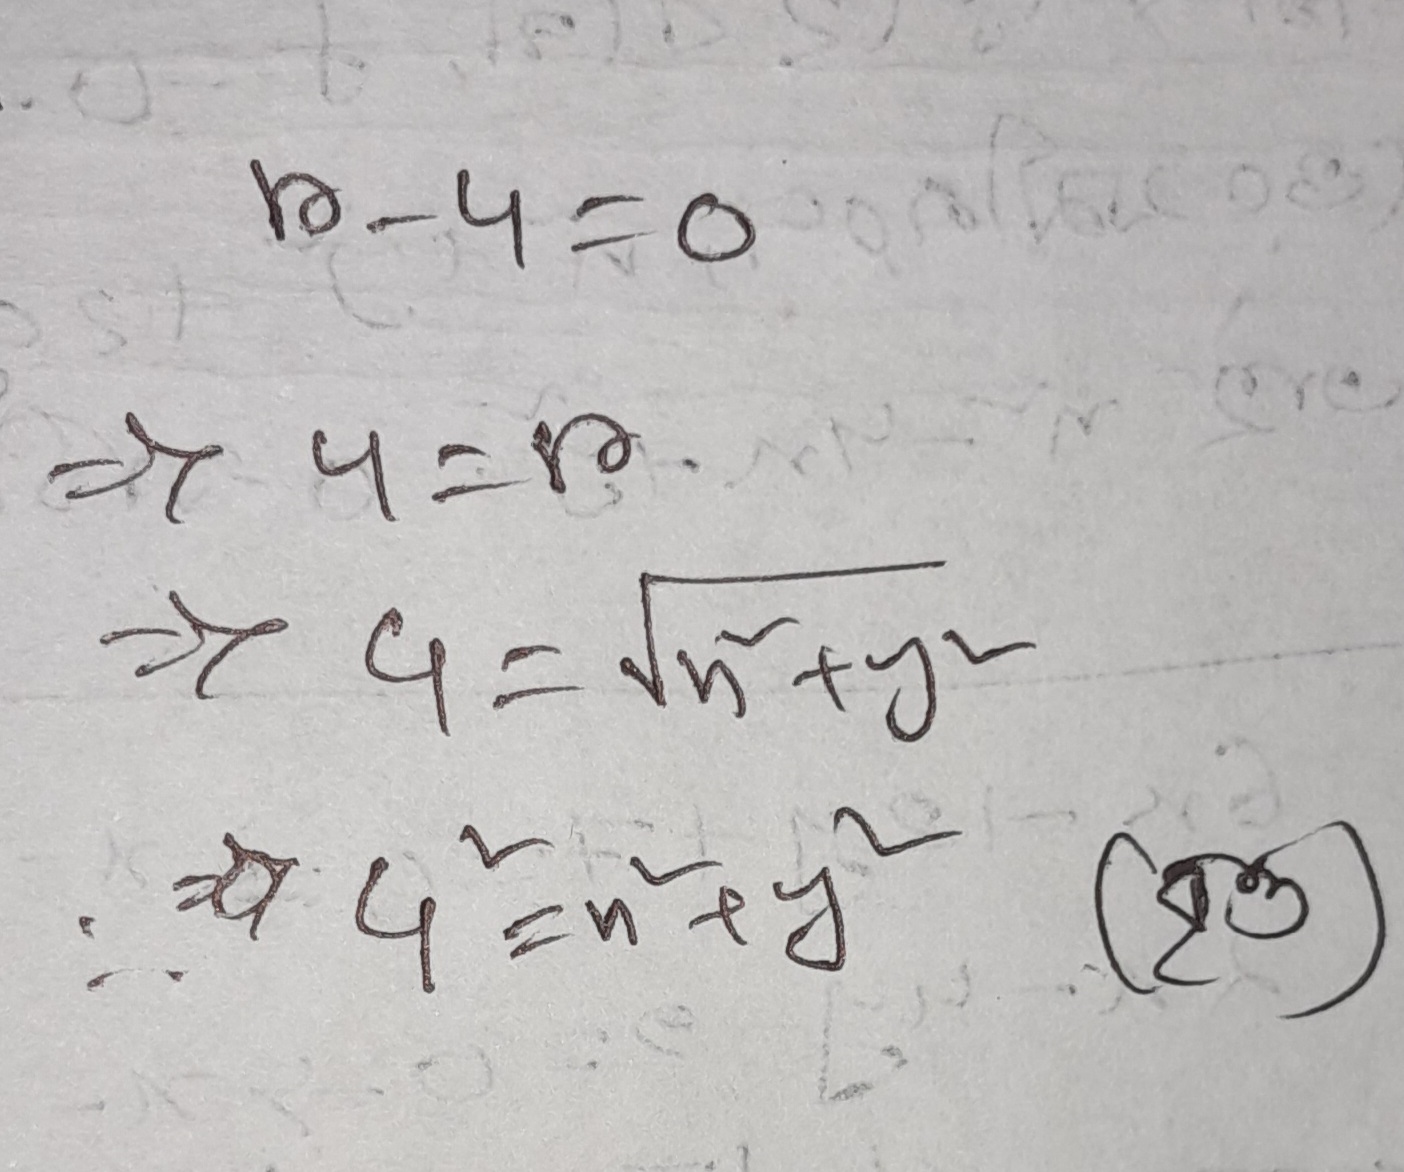 r - 4 = 0
⇒ 4 = r
⇒ 4 = √(x² + y²)
∴ ⇒ 4² = x² + y² (বৃত্ত)